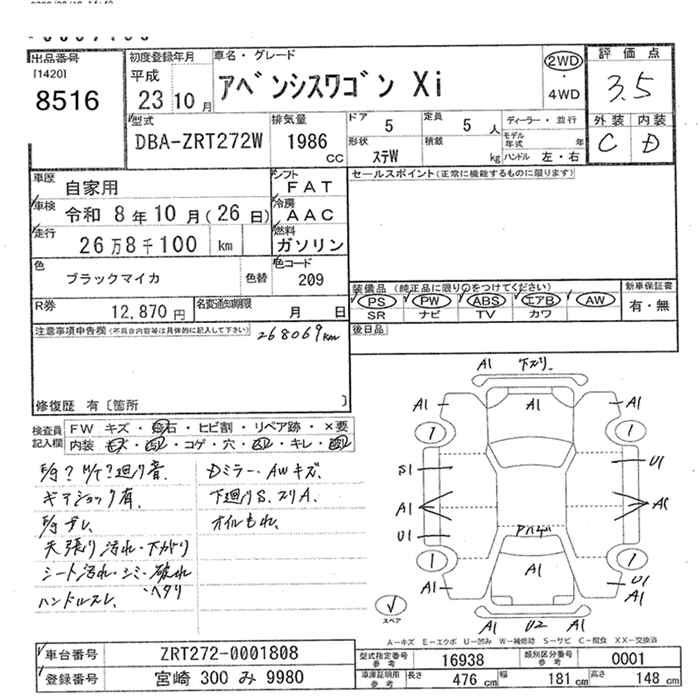 出品番号
[1420]
8516
初度登録年月
平成
23 10月
車名・グレード
アベンシスワゴン Xi
2WD
・
4WD
評価点
3.5
外装 内装
C D
型式
DBA-ZRT272W
排気量
1986
CC
ドア
5
定員
5 人
形状
ステW
積載
kg
ディーラー・並行
モデル年式 年
ハンドル 左・右
車歴
自家用
シフト
FAT
車検
令和 8年10月(26日)
冷房
AAC
走行
26万8千100 km
燃料
ガソリン
色
ブラックマイカ
色替
色コード
209
R券
12,870円
名変通知期限
月 日
セールスポイント(正常に機能するものに限ります)
装備品 (純正品に限り○をつけてください)
PS PW ABS エアB AW
SR ナビ TV カワ
新車保証書
有・無
後日品
注意事項申告欄(不具合内容等は具体的に記入して下さい)
268069km
修復歴 有〔箇所 〕
検査員
記入欄
FW キズ・飛石・ヒビ割・リペア跡・×要
内装
コゲ・穴
キレ
廻り音
ギアショック有
天張り汚れ・下がり
シート汚れ・シミ・破れ
・ヘタリ
ハンドルスレ
Dミラー・AWキズ
下廻りS.スリA.
オイルもれ
A1 下スリ
A1 A1 A1
1 1
S1 U1
A1 A1
U1
1 1
A1 A1 U1
A1
スペア
A1 U2 A1
A-キズ E-エクボ U-凹み W-補修跡 S-サビ C-腐食 XX-交換済
車台番号
ZRT272-0001808
登録番号
宮崎 300 み 9980
型式指定番号
参考
16938
類別区分番号
参考
0001
車庫証明用
参考
長さ 476 cm
幅 181 cm
高さ 148 cm